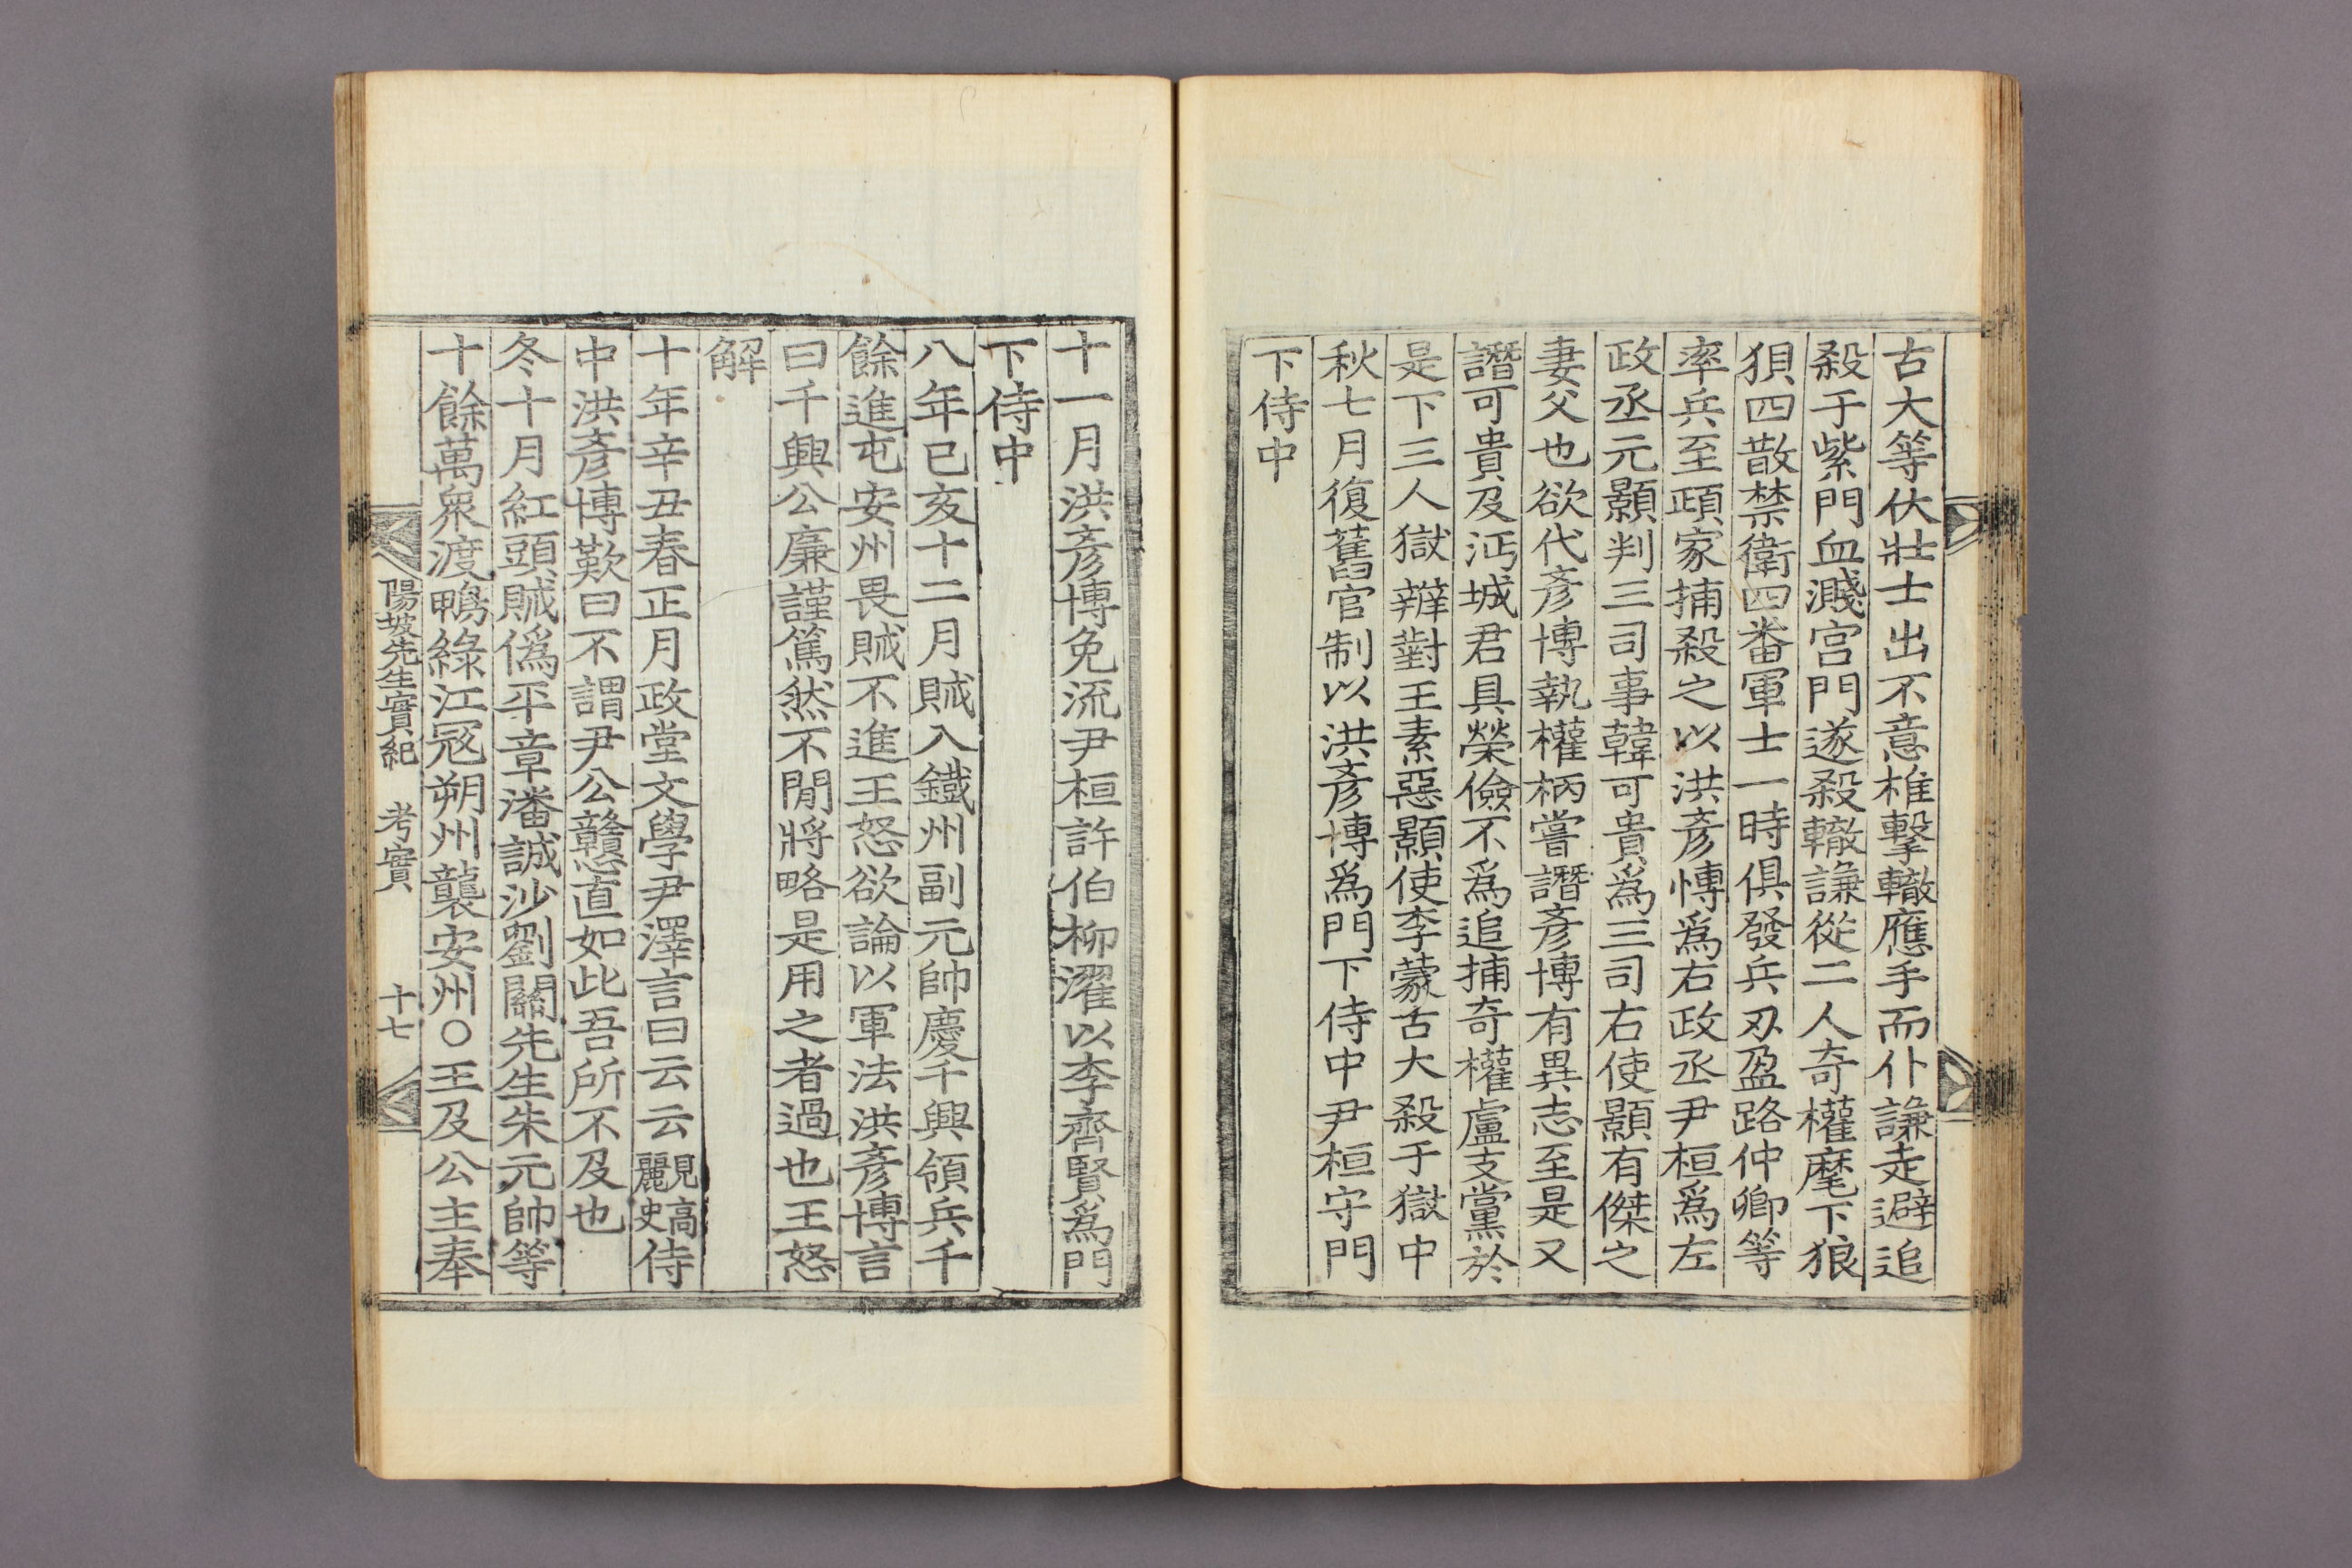 古大等伏壯士出不意椎擊轍應手而仆謙走避追
殺于紫門血濺宮門遂殺轍謙從二人奇權麾下狼
狽四散禁衛四番軍士一時俱發兵刃盈路仲卿等
率兵至頙家捕殺之以洪彥愽爲右政丞尹桓爲左
政丞元顥判三司事韓可貴爲三司右使顥有傑之
妻父也欲代彥博執權柄嘗譖彥博有異志至是又
譖可貴及沔城君具榮儉不爲追捕奇權盧支黨於
是下三人獄辨對王素惡顥使李蒙古大殺于獄中
秋七月復舊官制以洪彥博爲門下侍中尹桓守門
下侍中
十一月洪彥博免流尹桓許伯柳濯以李齊賢爲門
下侍中
八年已亥十二月賊入鐵州副元帥慶千興領兵千
餘進屯安州畏賊不進王怒欲論以軍法洪彥博言
曰千興公廉謹篤然不閒將略是用之者過也王怒
解
十年辛丑春正月政堂文學尹澤言曰云云見高麗史侍
中洪彥博歎曰不謂尹公戇直如此吾所不及也
冬十月紅頭賊僞平章潘誠沙劉關先生朱元帥等
十餘萬衆渡鴨綠江冦朔州襲安州○王及公主奉
陽坡先生實紀 考實 十七